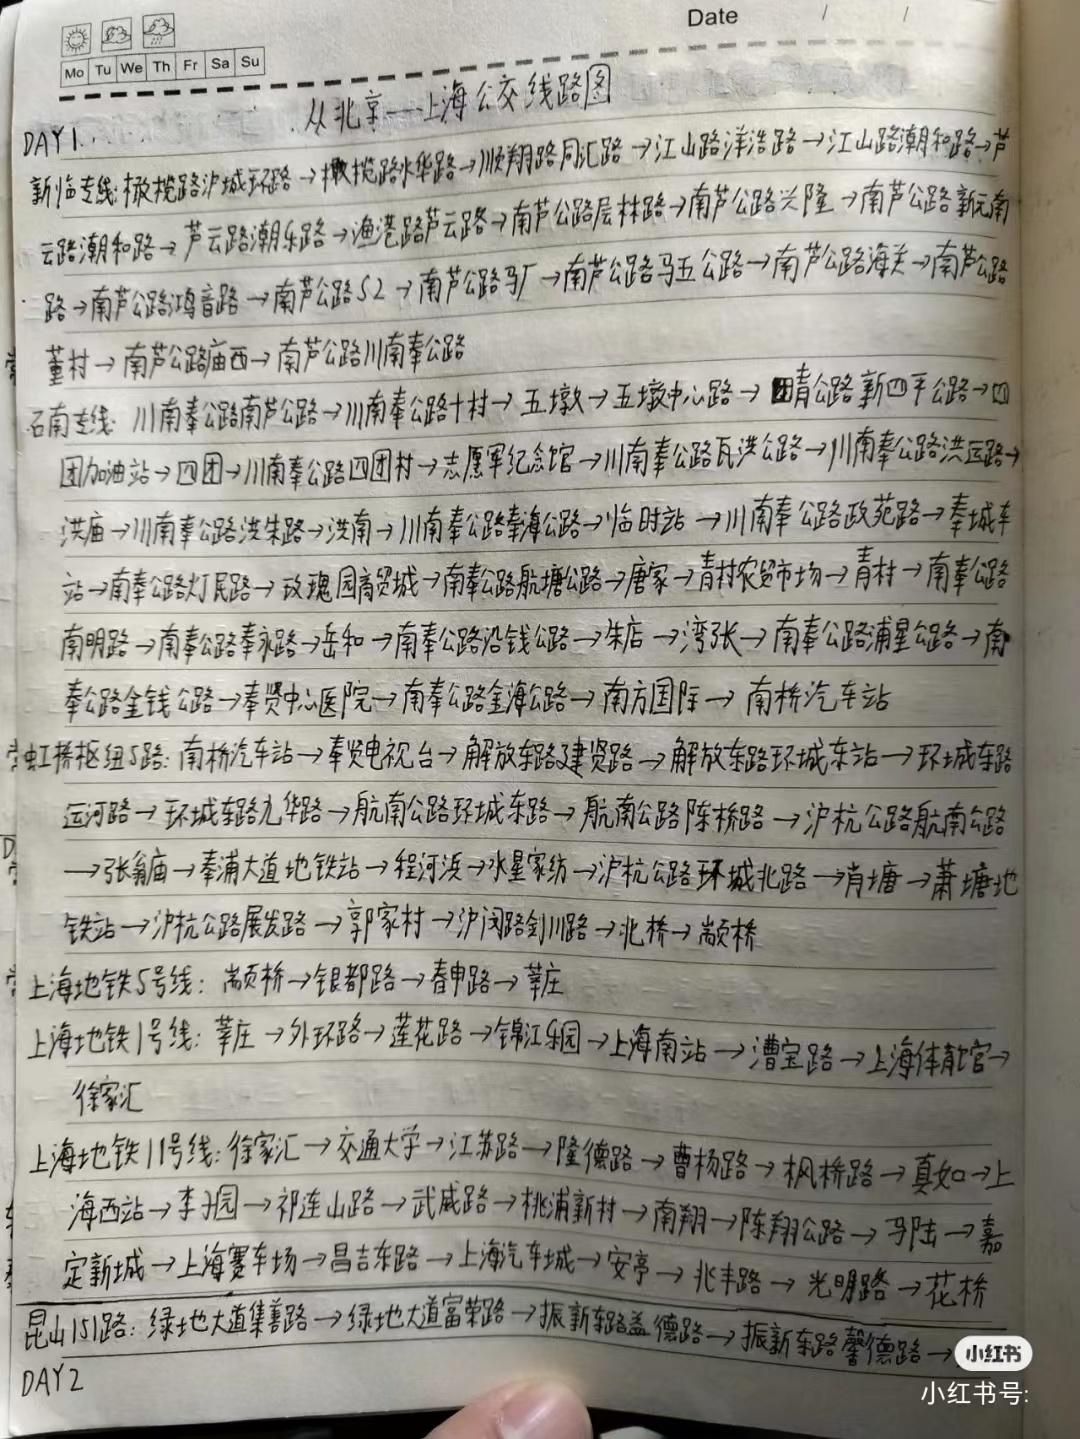 Date / /
Mo Tu We Th Fr Sa Su
从北京——上海公交线路图
DAY1
新临专线:橄榄路沪城环路→橄榄路水华路→顺翔路同汇路→江山路洋浩路→江山路潮和路→芦
云路潮和路→芦云路潮乐路→渔港路芦云路→南芦公路层林路→南芦公路兴隆→南芦公路新元南
路→南芦公路鸿音路→南芦公路S2→南芦公路马厂→南芦公路马五公路→南芦公路海关→南芦公路
董村→南芦公路庙西→南芦公路川南奉公路
石南专线:川南奉公路南芦公路→川南奉公路十村→五墩→五墩中心路→团青公路新四平公路→四
团加油站→四团→川南奉公路四团村→志愿军纪念馆→川南奉公路瓦洪公路→川南奉公路洪运路→
洪庙→川南奉公路洪朱路→洪南→川南奉公路奉海公路→临时站→川南奉公路政苑路→奉城车
站→南奉公路灯民路→玫瑰园商贸城→南奉公路航塘公路→唐家→青村农贸市场→青村→南奉公路
南明路→南奉公路奉永路→岳和→南奉公路沿钱公路→朱店→湾张→南奉公路浦星公路→南
奉公路金钱公路→奉贤中心医院→南奉公路金海公路→南方国际→南桥汽车站
虹桥枢纽5路:南桥汽车站→奉贤电视台→解放东路建贤路→解放东路环城东站→环城东路
运河路→环城东路九华路→航南公路环城东路→航南公路陈桥路→沪杭公路航南公路
→张翁庙→奉浦大道地铁站→程河浜→水星家纺→沪杭公路环城北路→肖塘→萧塘地
铁站→沪杭公路展发路→郭家村→沪闵路剑川路→北桥→颛桥
上海地铁5号线:颛桥→银都路→春申路→莘庄
上海地铁1号线:莘庄→外环路→莲花路→锦江乐园→上海南站→漕宝路→上海体育馆→
徐家汇
上海地铁11号线:徐家汇→交通大学→江苏路→隆德路→曹杨路→枫桥路→真如→上
海西站→李子园→祁连山路→武威路→桃浦新村→南翔→陈翔公路→马陆→嘉
定新城→上海赛车场→昌吉东路→上海汽车城→安亭→兆丰路→光明路→花桥
昆山151路:绿地大道集善路→绿地大道富荣路→振新东路益德路→振新东路馨德路→
DAY2
小红书
小红书号: